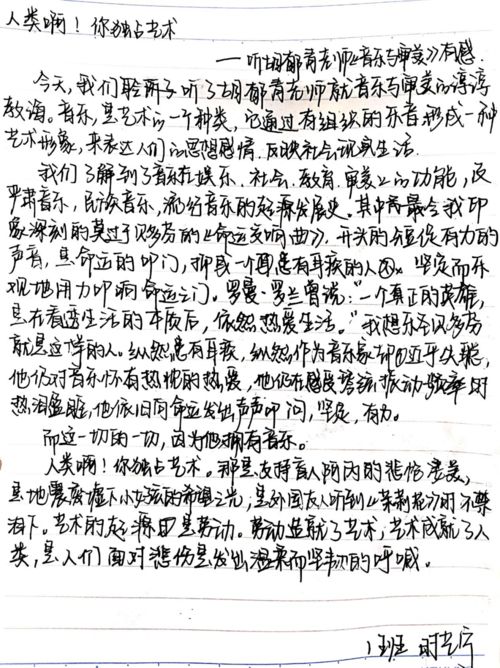 人类啊！你独占艺术
——听胡郁青老师《音乐与审美》有感
今天，我们聆听了胡郁青老师就音乐与审美的谆谆
教诲。音乐，是艺术的一个种类，它通过有组织的乐音形成一种
艺术形象，来表达人们的思想感情，反映社会现实生活。
我们了解到了音乐在娱乐、社会、教育、审美上的功能，及
严肃音乐，民族音乐，流行音乐的起源发展史。其中最令我印
象深刻的莫过于贝多芬的《命运交响曲》，开头的短促有力的
声音，是命运的叩门，抑或一个患有耳疾的人，坚定而乐
观地用力叩响命运之门。罗曼·罗兰曾说："一个真正的英雄，
是在看透生活的本质后，依然热爱生活。"我想乐圣贝多芬
就是这样的人。纵然患有耳疾，纵然作为音乐家却近乎失聪，
他仍对音乐怀有热忱的热爱，他仍在感受琴弦振动频率时
热泪盈眶，他依旧向命运发出声声叩问，坚定，有力。
而这一切的一切，因为他拥有音乐。
人类啊！你独占艺术。那是支持盲人阿炳的悲怆凄美，
是地震废墟下小女孩的希望之光，是外国友人听到《茉莉花》时不禁
泪下。艺术的起源是劳动。劳动造就了艺术，艺术成就了人
类，是人们面对悲伤是发出温柔而坚韧的呼喊。